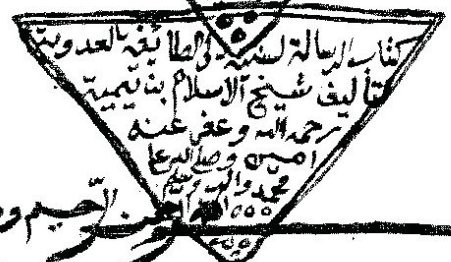 كتاب الرسالة السنية الى الطايفة العدوية
تأليف شيخ الاسلام بن تيمية
رحمه الله وعفى عنه
امين وصلى الله على
محمد واله وسلم
الرحمن الرحيم